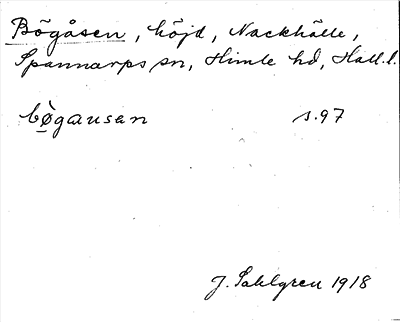 Bögåsen, höjd, Nackhälle,
Spannarps sn, Himle hd, Hall.l.
bògausan s.97
J. Sahlgren 1918